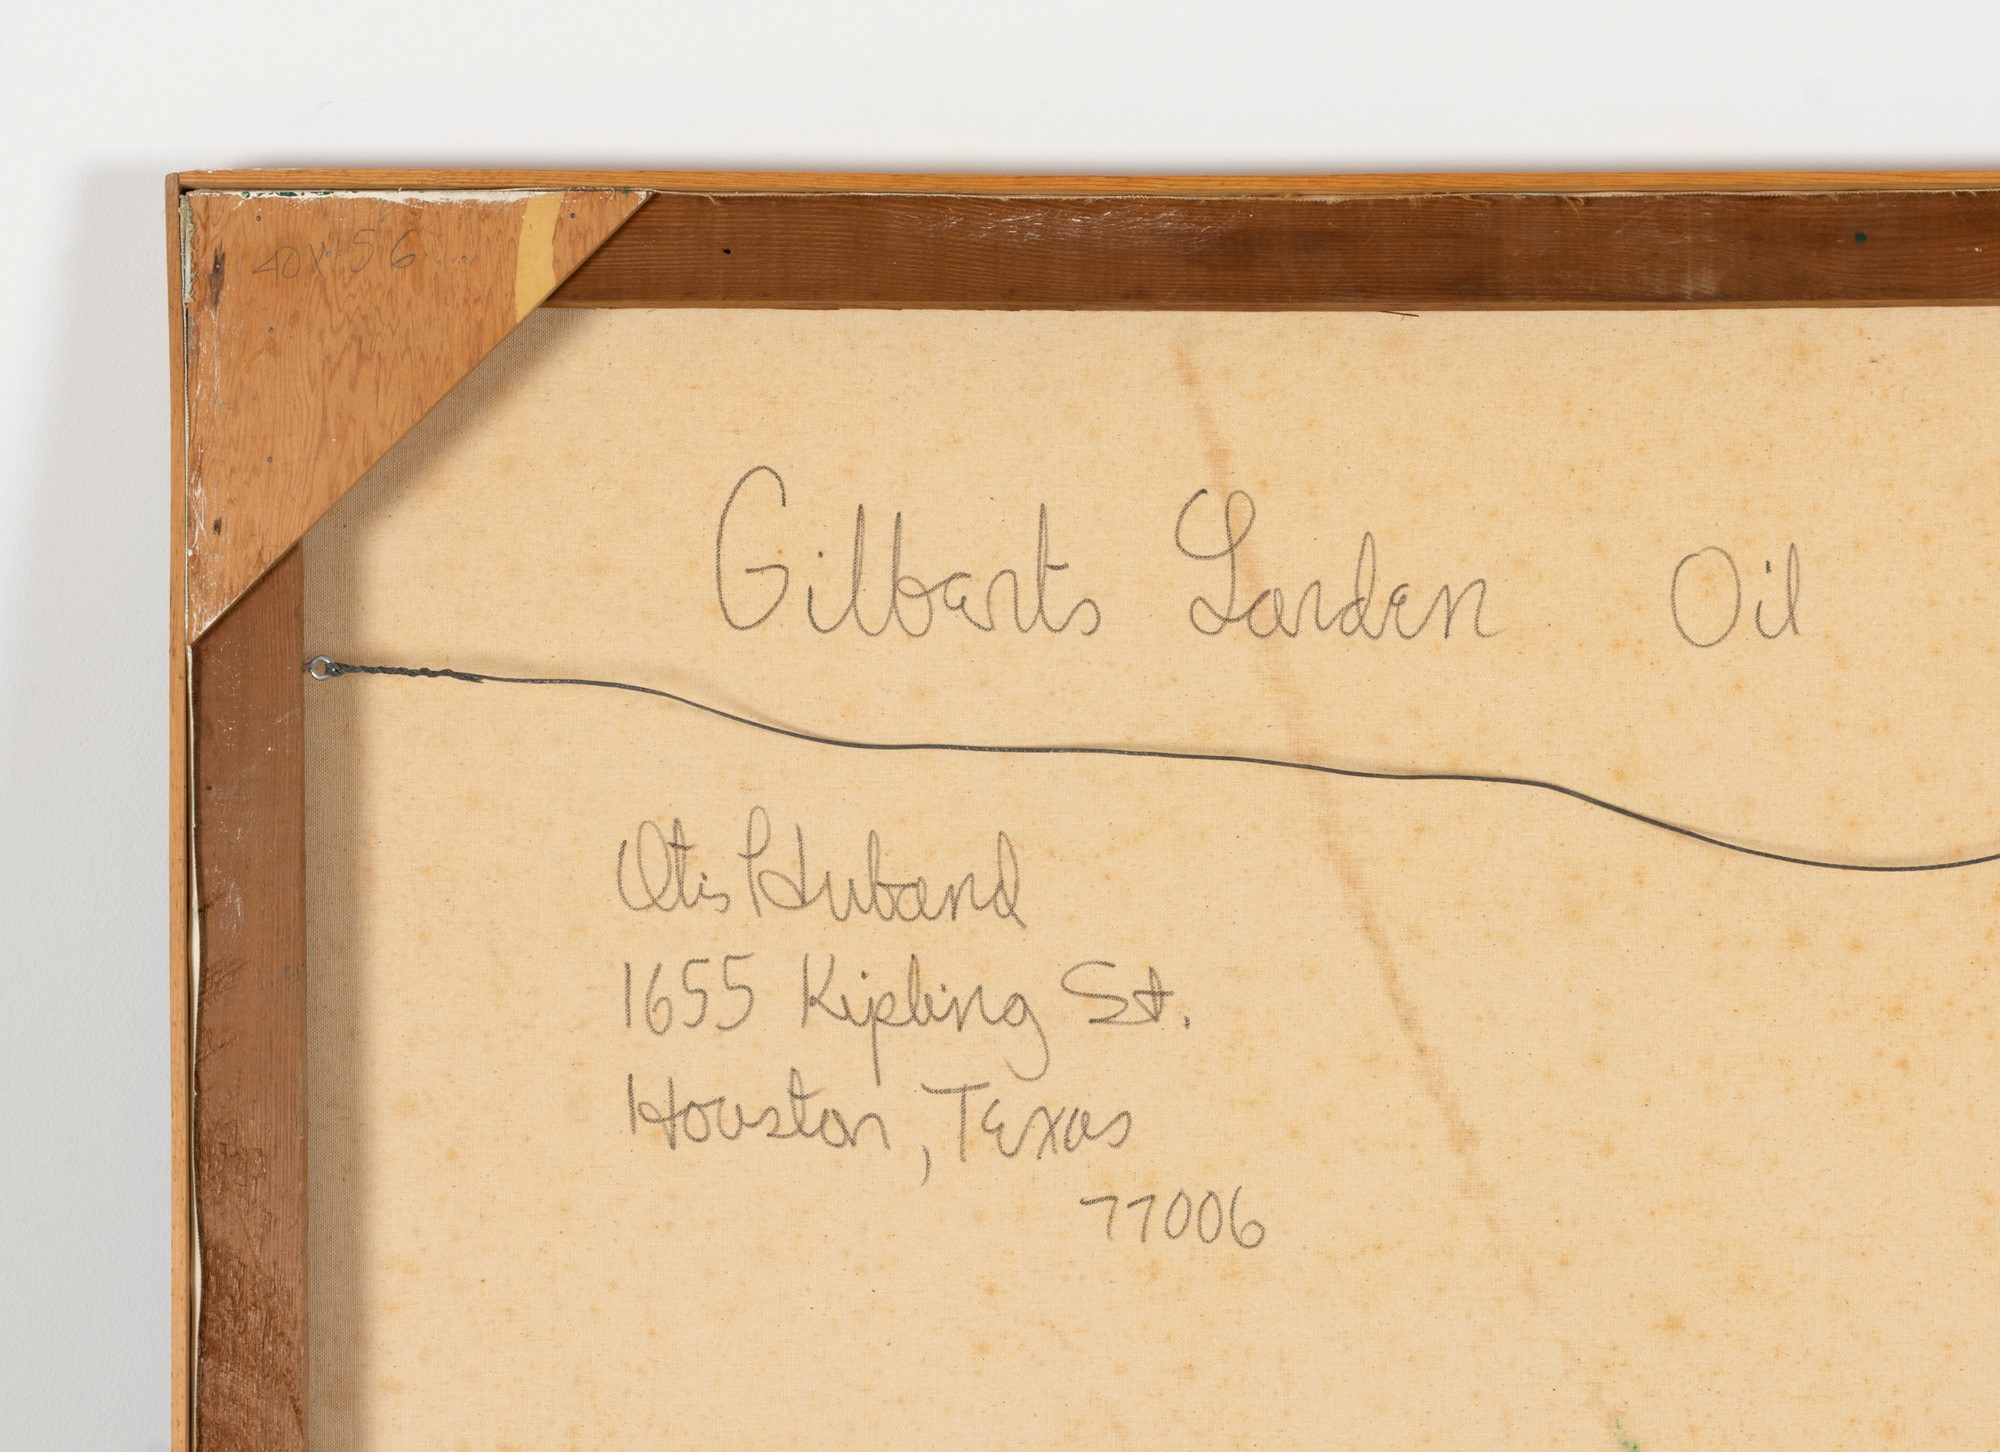 40 x 56
Gilberts Garden Oil
Otis Huband
1655 Kipling St.
Houston, Texas
77006